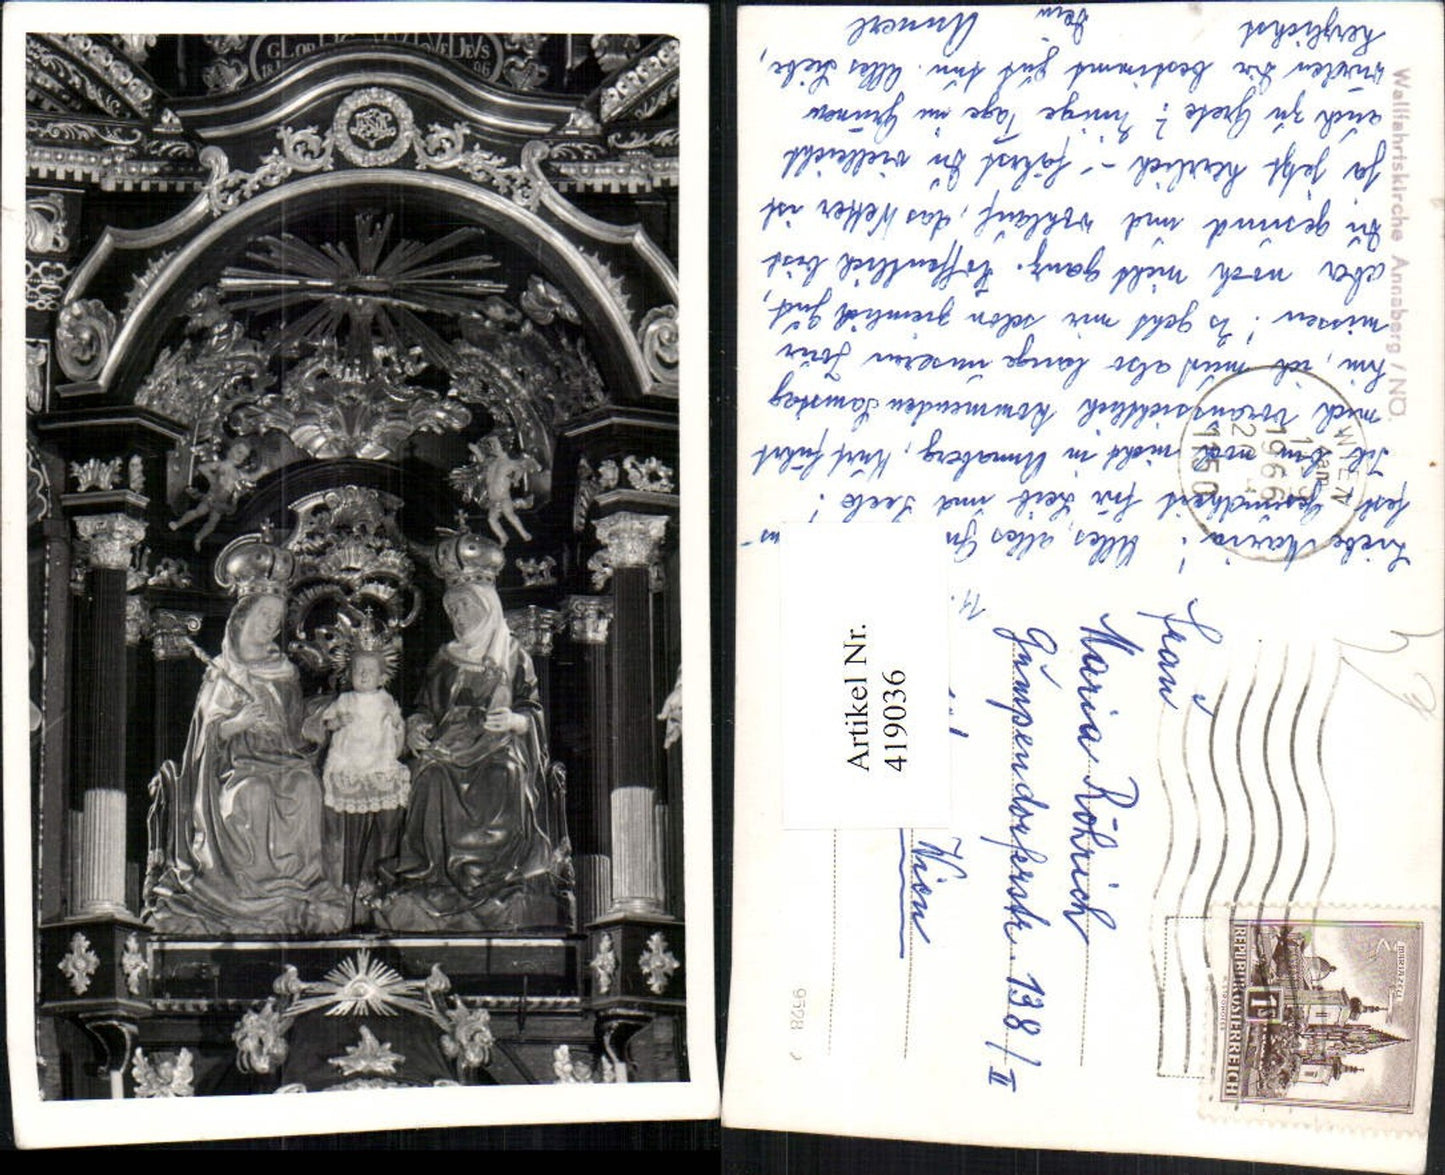 GLOR
DEVS
Wallfahrtskirche Annaberg / NÖ.
Liebe Maria! Alles, alles
fest Gesundheit für Leib und Seele!
Ich bin noch nicht in Annaberg, Kurt fährt
mich voraussichtlich kommenden Samstag
hin, ich muß also lange unseren
missen! Es geht mir schon ziemlich gut,
aber noch nicht ganz. Hoffentlich bist
Du gesund und wohlauf, das Wetter ist
ja jetzt herrlich – fährst Du vielleicht
auch zu Grete? Einige Tage im Grünen
würden Dir bestimmt gut tun. Alles Liebe,
herzlichst Dein Annerl
WIEN
1966
1150
Frau
Maria Röhrich
Gumpendorferstr. 138/II
Wien
Artikel Nr.
419036
MARIAZELL
REPUBLIK ÖSTERREICH
9628